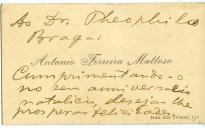 Ao Dr. Theophilo
Braga:
Antonio Ferreira Mattoso
Cumprimentando-o
no seu anniversario
natalicio, deseja-lhe
prosperas felicidades